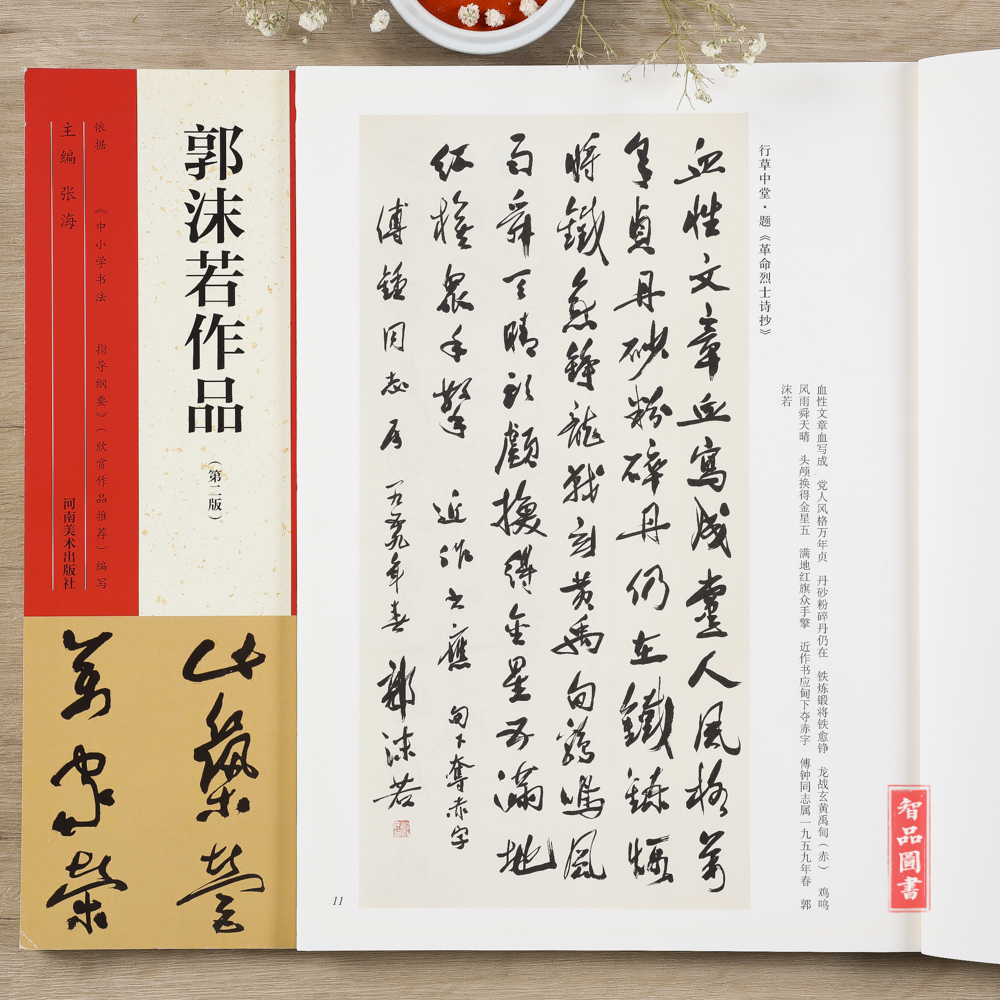 郭沫若作品
（第二版）
依据《中小学书法 指导纲要》（欣赏作品推荐）编写
主编 张海
河南美术出版社
血性文章血写成 党人风格万年贞 丹砂粉碎丹仍在 铁炼锻将铁愈铮 龙战玄黄禹甸（赤） 鸡鸣
风雨舜天晴 头颅换得金星五 满地红旗众手擎 近作书应甸下夺赤字 傅钟同志属一九五九年春 郭
沫若
行草中堂·题《革命烈士诗抄》
血性文章血寫成黨人風格萬
年貞丹砂粉碎丹仍在鐵鍊煅
將鐵愈錚龍戰玄黃禹甸鷄鳴風
雨舜天晴頭顱換得金星五滿地
紅旗眾手擎 近作書應 甸下奪赤字
傅鍾同志屬 一九五九年春 郭沫若
11
智品圖書